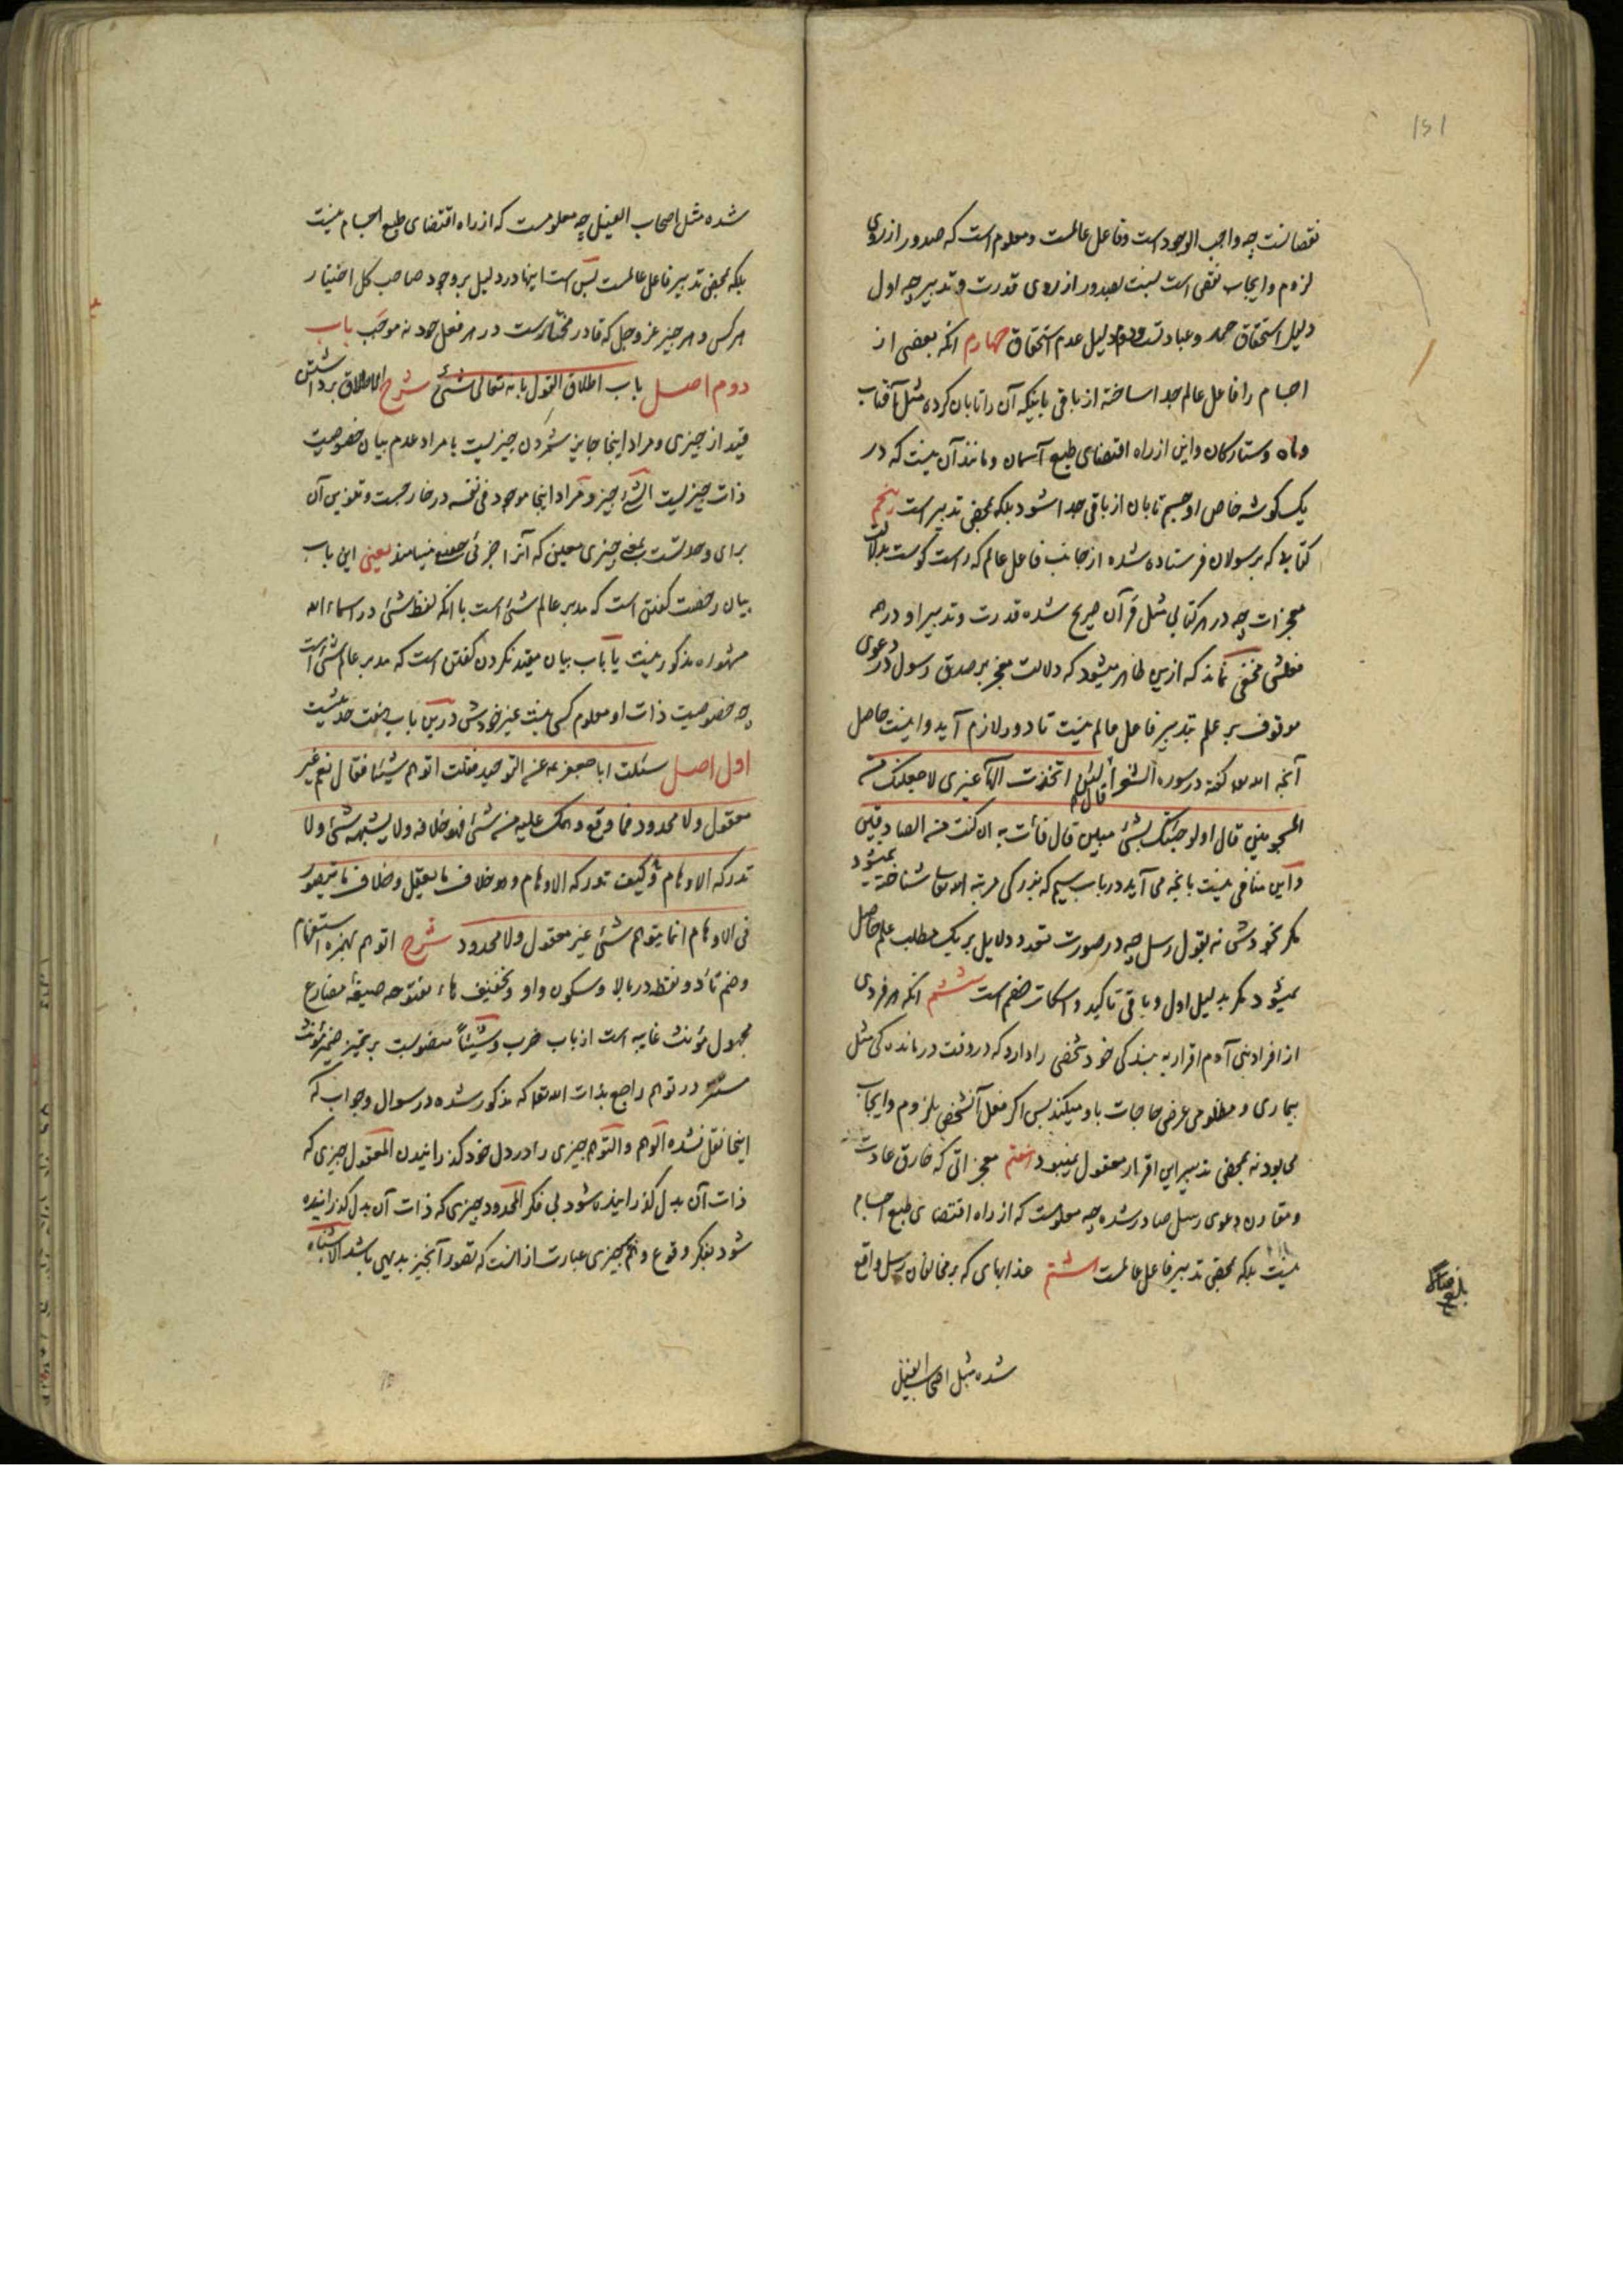 151
نقصانست چه واجب الوجود است وفاعل عالمست ومعلوم است که صدور از روی
لزوم وایجاب نقص است نسبت بصدور از روی قدرت وتدبیر چه اول
دلیل استحقاق حمد وعبادتست ودوم دلیل عدم استحقاق چهارم انکه بعضی از
اجسام را فاعل عالم جدا ساخته از باقی باینکه آن را تابان کرده مثل آفتاب
وماه وستارکان واین از راه اقتضای طبع آسمان ومانند آن نیست که در
یک کوشه خاص او جسم تابان از باقی جدا شود بلکه بمحض تدبیر است پنجم
کتابها که برسولان فرستاده شده از جانب فاعل عالم که راست کوست بدلالت
معجزات چه در هر کتابی مثل قرآن صریح شده قدرت وتدبیر او در هر
فعلش مخفی نماند که ازین ظاهر میشود که دلالت معجز بر صدق رسول در دعوی
موقوف بر علم بتدبیر فاعل عالم نیست تا دور لازم آید واینست حاصل
آنچه الله تعالی کفته در سوره الشعرا قال لئن اتخذت الها غیری لاجعلنک من
المسجونین قال اولو جئتک بشیء مبین قال فأت به ان کنت من الصادقین
واین منافی نیست بانچه می آید در باب سیم که بزرکی مرتبه الله تعالی شناخته نمیشود
مکر بخودش نه بقول رسل چه در صورت تعدد دلایل بر یک مطلب علم حاصل
نمیشود مکر بدلیل اول وباقی تاکید واسکات خصم است ششم انکه هر فردی
از افراد بنی آدم اقرار به بندکی خود شخصی را دارد که در وقت درماندکی مثل
بیماری ومظلومی عرض حاجات باو میکند پس اکر فعل آنشخص بلزوم وایجاب
می بود نه بمحض تدبیر این اقرار معقول نمیبود هفتم معجزاتی که خارق عادت
ومقارن دعوی رسل صادر شده چه معلومست که از راه اقتضای طبع اجسام
نیست بلکه بمحض تدبیر فاعل عالمست هشتم عذابهای که بر مخالفان رسل واقع
شده مثل اصحاب الفیل
شده مثل اصحاب الفیل چه معلومست که از راه اقتضای طبع اجسام نیست
بلکه بمحض تدبیر فاعل عالمست پس است اینها در دلیل بر وجود صاحب کل اختیار
هر کس وهر چیز عز وجل که قادر مختارست در هر فعل خود نه موجب باب
دوم اصل باب اطلاق القول بانه تعالی شیء شرح الاطلاق برداشتن
قید از چیزی ومراد اینجا جایز شمردن چیزیست یا مراد عدم بیان خصوصیت
ذات چیزیست الشیء چیز ومراد اینجا موجود فی نفسه در خارجست وتنوین آن
برای وحدتست بمعنی چیزی معین که آنرا جزئی حقیقی مینامند یعنی این باب
بیان رخصت کفتن است که مدبر عالم شیء است با انکه لفظ شیء در اسماء الله
مشهوره مذکور نیست یا باب بیان مقید نکردن کفتن است که مدبر عالم شیء است
چه خصوصیت ذات او معلوم کسی نیست غیر خودش درین باب هفت حدیثست
اول اصل سئلت ابا جعفر ع عن التوحید فقلت اتوهم شیئا فقال نعم غیر
معقول ولا محدود فما وقع وهمک علیه من شیء فهو خلافه ولا یشبهه شیء ولا
تدرکه الاوهام وکیف تدرکه الاوهام وهو خلاف ما یعقل وخلاف ما یتصور
فی الاوهام انما یتوهم شیء غیر معقول ولا محدود شرح اتوهم بهمزه استفهام
وضم تاء دو نقطه در بالا وسکون واو وتخفیف هاء مفتوحه صیغهٔ مضارع
مجهول مؤنث غایبه است از باب ضرب وشیئاً منصوبست بر تمیز ضمیر مؤنث
مستتر در توهم راجع بذات الله تعالی که مذکور شده در سوال وجواب که
اینجا نقل نشده الوهم والتوهم چیزی را در دل خود کذرانیدن المعقول چیزی که
ذات آن بدل کذرانیده شود بی فکر المحدود چیزی که ذات آن بدل کذرانیده
شود بفکر وقوع وهم بر چیزی عبارت از انست که تصور آنچیز بدیهی باشد الاشباه